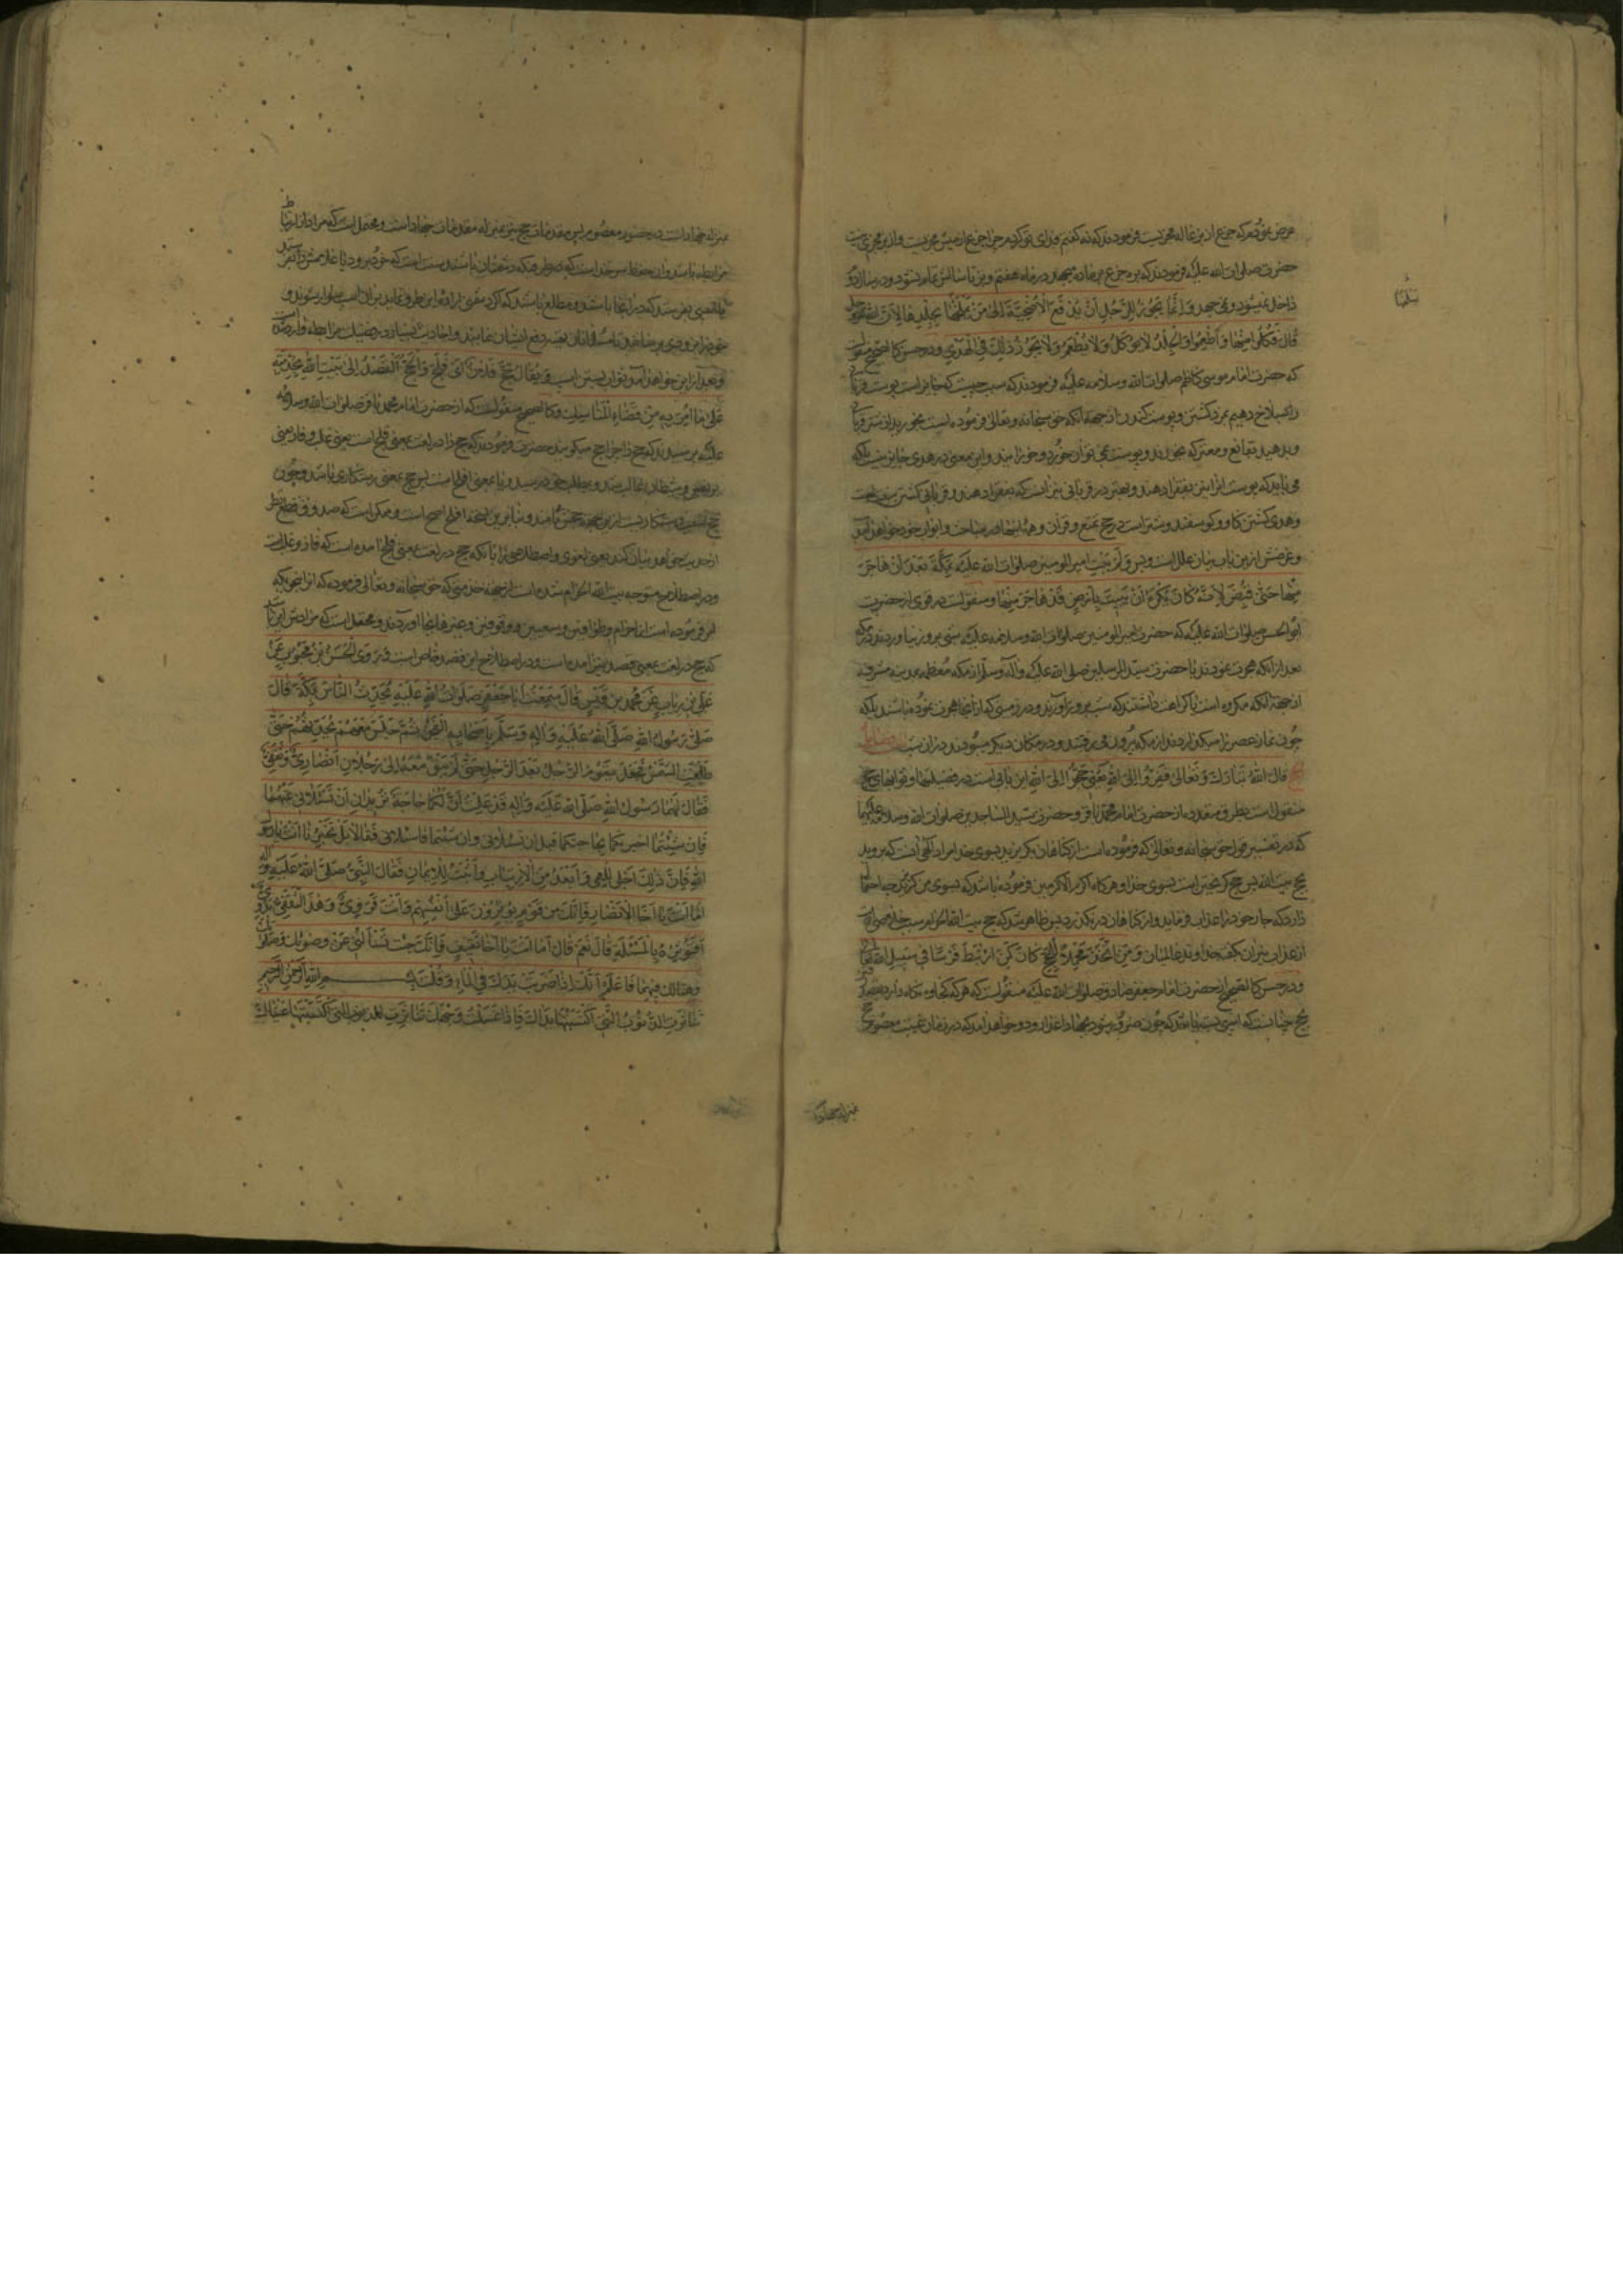 عرض نمودم که جذع از بزغاله مجزیست فرمودند که نه گفتم فدای تو گردم چرا جذع از میش مجزیست و از بز مجزی نیست
حضرت صلوات الله علیه فرمودند که بره جذع بر ماده میجهد در ماه هفتم و بز تا سالش تمام نشود و در سال دو
داخل نمیشود و نمی جهد وَاِنَّمَا یَجُوزُ لِلرَّجُلِ اَنْ یَدْفَعَ الْاُضْحِیَّةَ اِلیٰ مَنْ یَسْلَخُهَا بِجِلْدِهَا لِاَنَّ اللّٰهَ عزوجل
قَالَ فَکُلُوا مِنْهَا وَاَطْعِمُوا وَالْجِلْدُ لَا یُؤْکَلُ وَلَا یُطْعَمُ وَلَا یَجُوزُ ذٰلِکَ فِی الْهَدْیِ و در حسن کالصحیح منقول
که حضرت امام موسی کاظم صلوات الله وسلامه علیه فرمودند که سبب چیست که جایز است پوست قربا
را بسلاخ دهیم بمزد کشتن و پوست کندن از جهة آنکه حق سبحانه وتعالی فرموده است بخورید از شتر قربا
و بدهید بقانع و معتر که بخورند و پوست نمی توان خورد و خورانید و این معنی در هدی جایز نیست بلکه
می باید که پوست انرا نیز بفقرا دهند و بهتر در قربانی نیز انست که بفقرا دهند و قربانی کشتن سنت است
و هدی کشتن گاو و گوسفند و شتر است در حج تمتع و قران و همه اینها در مباحث و ابواب خود خواهد آمد
و غرضش ازین باب بیان علل است و بس وَلَمْ یَبِتْ امیر المومنین صلوات الله علیه بِمَکَّةَ بَعْدَ اَنْ هَاجَرَ
مِنْهَا حَتّیٰ قُبِضَ لِاَنَّهُ کَانَ یَکْرَهُ اَنْ یَبِیتَ بِاَرْضٍ قَدْ هَاجَرَ مِنْهَا و منقول است در قوی از حضرت
ابو الحسن صلوات الله علیه که حضرت امیر المومنین صلوات الله وسلامه علیه شبی بروز نیاوردند در مکه
بعد از انکه هجرت نمودند با حضرت سید المرسلین صلی الله علیه وآله وسلم از مکه معظمه بمدینه مشرفه
از جهة آنکه مکروه است یا کراهت داشتند که شب بروز آورند در زمینی که از انجا هجرت نموده باشند بلکه
چون نماز عصر را میگزاردند از مکه بیرون می رفتند و در مکان دیگر میبودند در ان شب باب فضایل
الحج قال اللهُ تَبَارَکَ وَتَعَالیٰ فَفِرُّوا اِلَی اللّٰهِ یَعْنِی حُجُّوا اِلَی اللّٰهِ این بابی است در فضیلتها و ثوابهای حج
منقولست بطرق متعدده از حضرت امام محمد باقر و حضرت سید الساجدین صلوات الله وسلامه علیهما
که در تفسیر قول حق سبحانه وتعالی که فرموده است از گناهان بگریزید بسوی خدا مراد الهی آنست که بروید
بحج بیت الله پس حج گریختن است بسوی خدا و هرگاه اکرم الاکرمین فرموده باشد که بسوی من گریزید چه احتما
دارد که جار خود را عذاب فرماید و از گناهان در نگذرد پس ظاهر شد که حج بیت الله الحرام سبب خلاصی است
از عذاب نیران بلطف خداوند عالمیان وَمَنِ اتَّخَذَ مَحْمِلًا لِلْحَجِّ کَانَ کَمَنِ ارْتَبَطَ فَرَسًا فِی سَبِیلِ اللّٰهِ
و در حسن کالصحیح از حضرت امام جعفر صادق صلوات الله علیه منقولست که هر که کجاوه نگاه دارد
بحج چنانست که اسبی بسته باشد که چون ضرور شود بجهاد اعدا رود و خواهد آمد که در زمان غیبت معصوم حج
بمنزله جهاد
بمنزله جهاد است در حضور معصوم پس مقدمات حج نیز بمنزله مقدمات جهاد است و محتمل است که مراد از ارتباط
مرابطه باشد و ان حفظ سرحد است که در طرفی که دشمنان باشند سنت است که خود برود یا غلامش را بفرستد
یا شخصی بفرستد که در انجا باشد و مطلع باشد که اگر دشمن اراده این طرف نماید بر ان اسب سوار شوند و
خود را بزودی برسانند و تا مسلمانان بقصد دفع ایشان بیایند و احادیث بسیار در فضیلت مرابطه وارد است
و بعد ازین خواهد آمد ثواب بستن اسب وَیُقَالُ حَجَّ فُلَانٌ اَیْ فَلَجَ وَالْحَجُّ الْقَصْدُ اِلیٰ بَیْتِ اللّٰهِ لِخِدْمَتِهِ
عَلیٰ مَا اُمِرَ بِهِ مِنْ قَضَاءِ الْمَنَاسِکِ و کالصحیح منقولست که از حضرت امام محمد باقر صلوات الله وسلامه
علیه پرسیدند که حج را چرا حج میگویند حضرت فرمودند که حج در لغت بمعنی فلج است یعنی غلب و فاز یعنی
بر نفس و شیطان غالب شد و بمطلب خود رسید و یا بمعنی افلح است پس حج بمعنی رستگاری باشد و چون
از حدیث می خواهد بیان کند معنی لغوی و اصطلاحی را بانکه حج در لغت بمعنی فلج آمده است که فاز و غلب است
و در اصطلاح متوجه بیت الله الحرام شدن است از جهة خدمتی که حق سبحانه وتعالی فرموده که انرا بجا
امر فرموده است از احرام و طوافین و سعیین و وقوفین و غیرها بجا آورند و محتمل است که مرادش این با
که حج در لغت بمعنی قصد نیز آمده است و در اصطلاح این قصد خاص است وَرَوَی الْحَسَنُ بْنُ مَحْبُوبٍ عَنْ
عَلِیِّ بْنِ رِئَابٍ عَنْ مُحَمَّدِ بْنِ قَیْسٍ قَالَ سَمِعْتُ اَبَا جَعْفَرٍ صَلَوَاتُ اللّٰهِ عَلَیْهِ یُحَدِّثُ النَّاسَ بِمَکَّةَ قَالَ
صَلّیٰ رَسُولُ اللّٰهِ صَلَّی اللّٰهُ عَلَیْهِ وَآلِهِ وَسَلَّمَ بِاَصْحَابِهِ الْفَجْرَ ثُمَّ جَلَسَ مَعَهُمْ یُحَدِّثُهُمْ حَتّیٰ
طَلَعَتِ الشَّمْسُ فَجَعَلَ یَقُومُ الرَّجُلُ بَعْدَ الرَّجُلِ حَتّیٰ لَمْ یَبْقَ مَعَهُ اِلَّا رَجُلَانِ اَنْصَارِیٌّ وَثَقَفِیٌّ
فَقَالَ لَهُمَا رَسُولُ اللّٰهِ صَلَّی اللّٰهُ عَلَیْهِ وَآلِهِ قَدْ عَلِمْتُ اَنَّ لَکُمَا حَاجَةً تُرِیدَانِ اَنْ تَسْئَلَانِی عَنْهَا
فَاِنْ شِئْتُمَا اخبرتکما بحاجتکما قبل ان تسئلانی وان شئتما فاسئلانی فَقَالَا بَلْ تُخْبِرُنَا اَنْتَ یَا رَسُولَ
اللّٰهِ فَاِنَّ ذٰلِکَ اَجْلیٰ لِلْعَمیٰ وَاَبْعَدُ مِنَ الْاِرْتِیَابِ وَاَثْبَتُ لِلْاِیمَانِ فَقَالَ النَّبِیُّ صَلَّی اللّٰهُ عَلَیْهِ وَآلِهِ
اَمَّا اَنْتَ یَا اَخَا الْاَنْصَارِ فَاِنَّکَ مِنْ قَوْمٍ یُؤْثِرُونَ عَلیٰ اَنْفُسِهِمْ وَاَنْتَ قَرَوِیٌّ وَهٰذَا الثَّقَفِیُّ بَدَوِیٌّ
اَفَتُؤْثِرُهُ بِالْمَسْئَلَةِ قَالَ نَعَمْ قَالَ اَمَّا اَنْتَ یَا اَخَا ثَقِیفٍ فَاِنَّکَ جِئْتَ تَسْاَلُنِی عَنْ وُضُوئِکَ وَصَلٰوتِکَ
وَمَا لَکَ فِیهِمَا فَاعْلَمْ اَنَّکَ اِذَا ضَرَبْتَ یَدَکَ فِی الْمَاءِ وَقُلْتَ بِسْمِ اللّٰهِ الرَّحْمٰنِ الرَّحِیمِ
تَنَاثَرَتِ الذُّنُوبُ الَّتِی اکْتَسَبَتْهَا یَدَاکَ فَاِذَا غَسَلْتَ وَجْهَکَ تَنَاثَرَتِ الذنوب الَّتِی اکْتَسَبَتْهَا عَیْنَاکَ